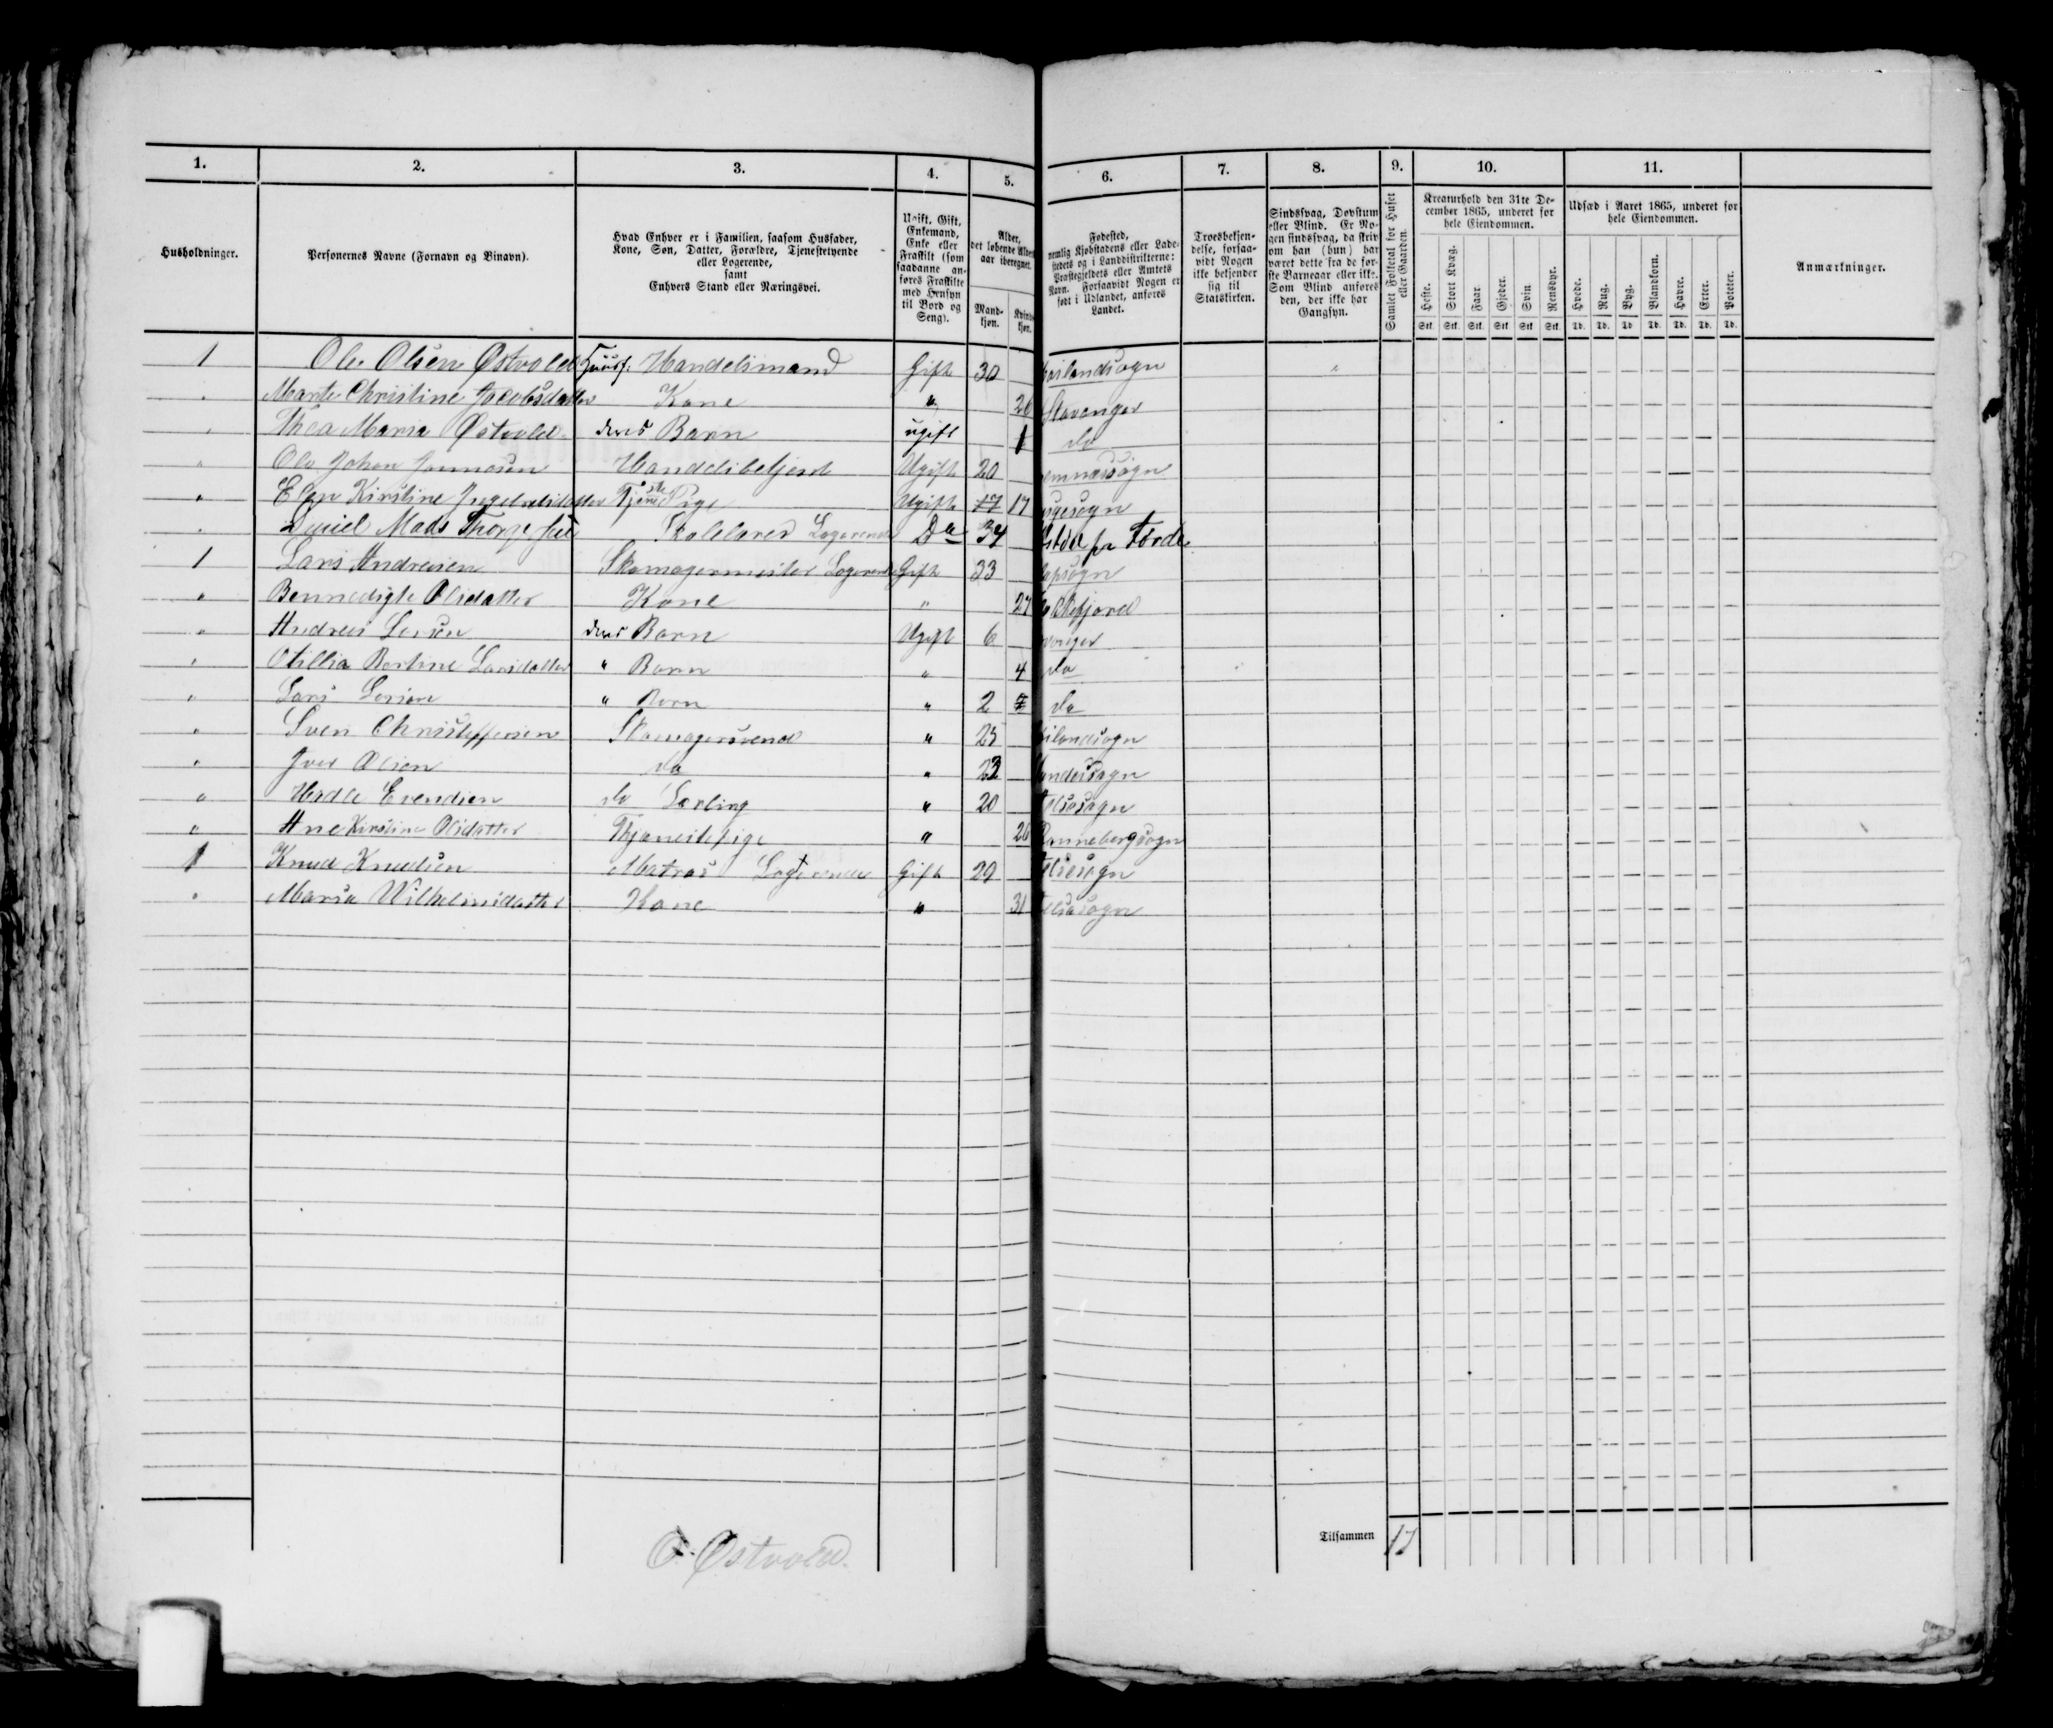 1. 2. 3. 4. 5. 6. 7. 8. 9. 10. 11.
Husholdninger.
Personernes Navne (Fornavn og Binavn).
Hvad Enhver er i Familien, saasom Husfader,
Kone, Søn, Datter, Forældre, Tjenestetyende
eller Logerende,
samt
Enhvers Stand eller Næringsvei.
Ugift, Gift,
Enkemand,
Enke eller
Fraskilt (som
saadanne an-
føres Fraskilte
med Hensyn
til Bord og
Seng).
Alder,
det løbende Alders-
aar iberegnet.
Mand-
kjøn.
Kvinde-
kjøn.
Fødested,
nemlig Kjøbstadens eller Lade-
stedets og i Landdistrikterne:
Præstegjeldets eller Amtets
Navn. Forsaavidt Nogen er
født i Udlandet, anføres
Landet.
Troesbekjen-
delse, forsaa-
vidt Nogen
ikke bekjender
sig til
Statskirken.
Sindssvag, Døvstum
eller Blind. Er No-
gen sindssvag, da skriv
om han (hun) har
været dette fra de før-
ste Barneaar eller ikke.
Som Blind anføres
den, der ikke har
Gangsyn.
Gamlet Folketal for Huset
eller Gaarden.
Kreaturhold den 31te De-
cember 1865, underet for
hele Eiendommen.
Heste. Stort Kvæg. Faar. Gjeder. Svin Rensdyr.
Stk. Stk. Stk. Stk. Stk. Stk.
Udsæd i Aaret 1865, underet for
hele Eiendommen.
Hvede. Rug. Byg. Blandkorn. Havre. Erter. Poteter.
Td. Td. Td Td. Td. Td. Td.
Anmærkninger.
1 Ole Olsen Østvold Huusf. Handelsmand Gift 30 oilandsogn
" Marte Christine Jacobsdatter Kone " 26 Stavanger
" Thea Maria Østvold deres Barn ugift 1 do
" Ole Johan Handelsbetjent Ugift 20
" Elen Kirstine Tjeneste Pige Ugift 17 17
" Daniel Mads Skolelærer Logerende Do 34 Førde
1 Lars Andreasen Skomagermester Logerende Gift 33
" Bennedigte Olsdatter Kone " 27
" Andreas Larsen deres Barn Ugift 6
" Otillia Bertine Larsdatter " Barn " 4 do
" Lars Larsen " Barn " 2 do
" Sven Christoffersen Skomagersvend " 25 ilandsogn
" Iver Olsen do " 23
" Hadle Evendsen do Lærling " 20
" Ane Kirstine Olsdatter Thjenestepige " 26 Rennebergsogn
1 Knud Knudsen Matros Logerende Gift 29
" Maria Wilhelmsdatter Kone " 31
Tilsammen 17
O. Østvold.